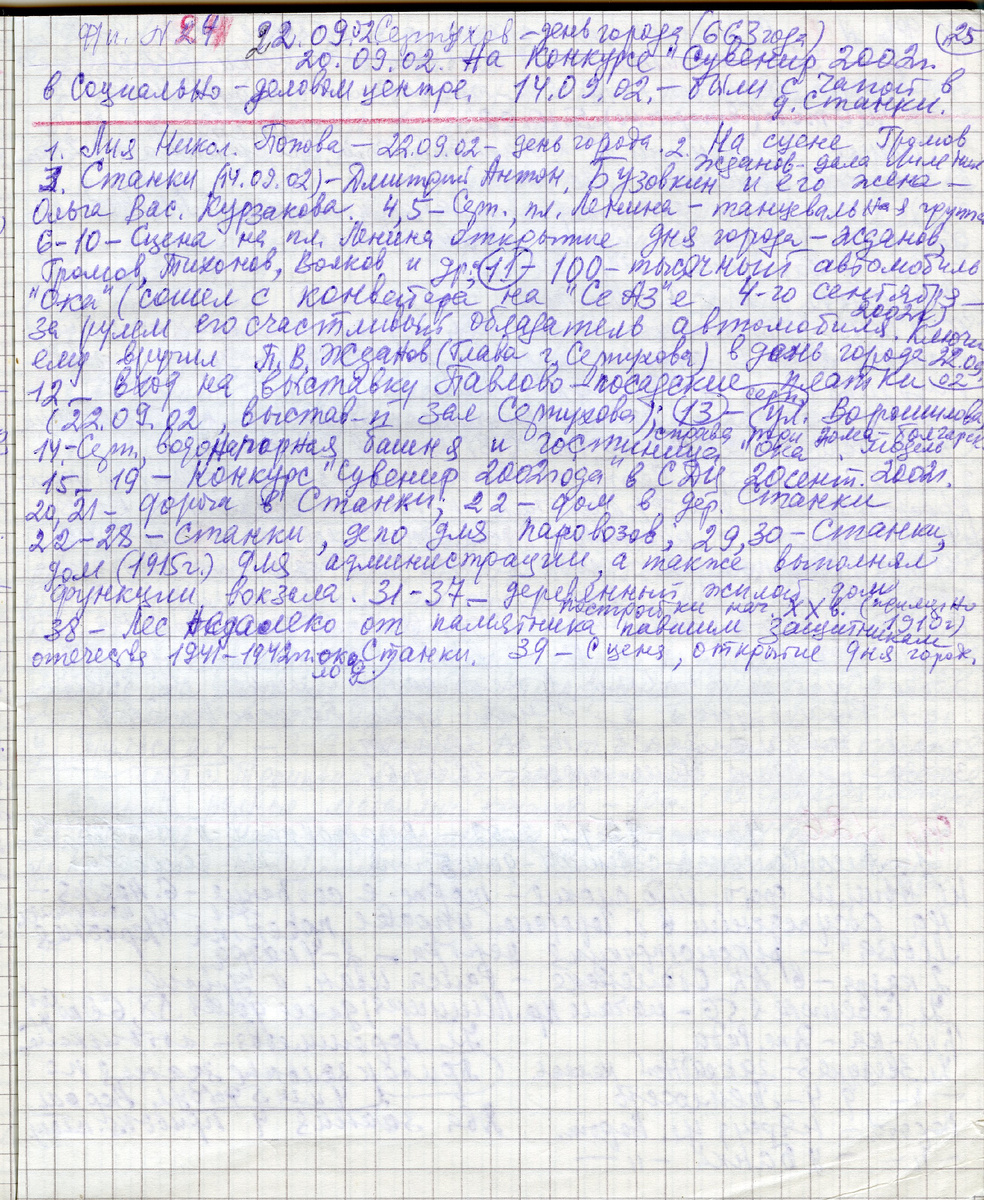 Фл. №24 22.09.02 Серпухов – день города (663 года) 25
20.09.02. На конкурсе "Сувенир 2002г.
в Социально-деловом центре. 14.09.02. – были с Чапой в
д. Станки.
1. Лия Никол. Попова – 22.09.02 – день города. 2. На сцене Громов
Жданов – дала
3. Станки (14.09.02) – Дмитрий Антон. Бузовкин и его жена –
Ольга Вас. Курзакова. 4,5 – Серп., пл. Ленина – танцевальная группа
6-10 – Сцена на пл. Ленина открытие дня города – Жданов,
Громов, Тихонов, Волков и др; 11 – 100-тысячный автомобиль
"Ока" (сошел с конвейера на "СеАЗ"е 4-го сентября –
2002г)
за рулем его счастливый обладатель автомобиля. Ключи
ему вручил П.В. Жданов (Глава г. Серпухова) в день города 22.09
02
12 – Вход на выставку Павлово-посадские платки
(22.09.02, выстав-й зал Серпухова); 13 – (ул. Ворошилова,
серп.
справа три дома – болгарс.
14 – Серп, водонапорная башня и гостиница "Ока". модель
15 – 19 – Конкурс "Сувенир 2002года" в СДЦ 20 сент. 2002г.
20, 21 – дорога в Станки; 22 – дом в дер. Станки
22-28 – Станки, депо для паровозов, 29,30 – Станки,
дом (1915г.) для администрации, а также выполнял
функции вокзала. 31-37 – деревянный жилой дом
постройки нач. XX в. (примерно
1910г)
38 – Лес недалеко от памятника павшим защитникам
отечества 1941-1942гг. око Станки. 39 – Сцена, открытие дня город.
ло д.